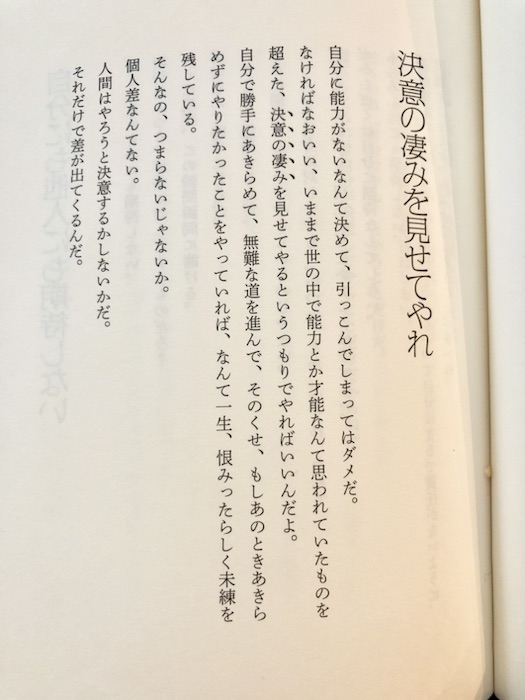 決意の凄みを見せてやれ
自分に能力がないなんて決めて、引っこんでしまってはダメだ。
なければなおいい、いままで世の中で能力とか才能なんて思われていたものを
超えた、決意の凄みを見せてやるというつもりでやればいいんだよ。
自分で勝手にあきらめて、無難な道を進んで、そのくせ、もしあのときあきら
めずにやりたかったことをやっていれば、なんて一生、恨みったらしく未練を
残している。
そんなの、つまらないじゃないか。
個人差なんてない。
人間はやろうと決意するかしないかだ。
それだけで差が出てくるんだ。